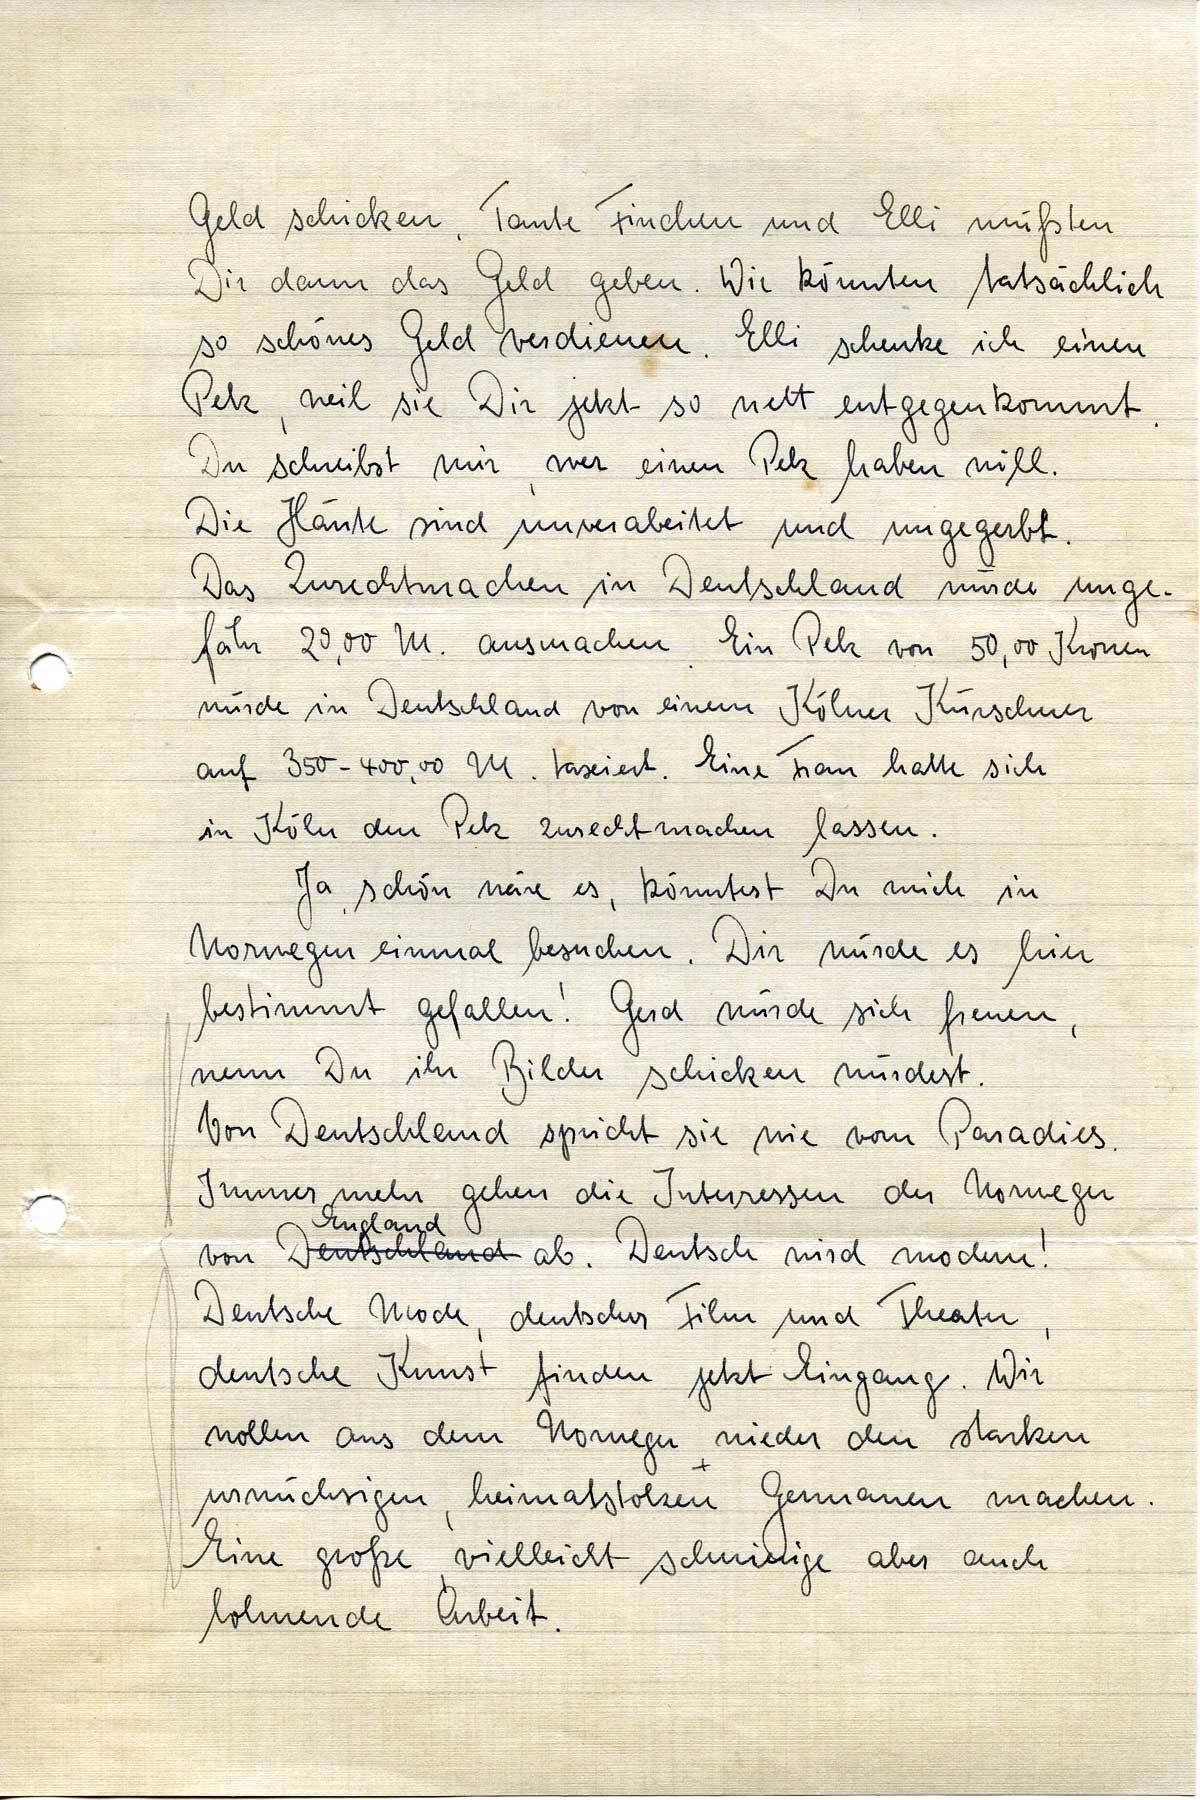 Geld schicken. Tante Finchen und Elli müßten
Dir dann das Geld geben. Wir könnten tatsächlich
so schönes Geld verdienen. Elli schenke ich einen
Pelz, weil sie Dir jetzt so nett entgegenkommt.
Du schreibst mir, wer einen Pelz haben will.
Die Häute sind unverabeitet und ungegerbt.
Das Zurechtmachen in Deutschland würde unge-
fähr 20,00 M. ausmachen. Ein Pelz von 50,00 Kronen
würde in Deutschland von einem Kölner Kürschner
auf 350-400,00 M. taxiert. Eine Frau hatte sich
in Köln den Pelz zurechtmachen lassen.
Ja, schön wäre es, könntest Du mich in
Norwegen einmal besuchen. Dir würde es hier
bestimmt gefallen! Gerd würde sich freuen,
wenn Du ihr Bilder schicken würdest.
Von Deutschland spricht sie wie vom Paradies.
Immer mehr gehen die Interessen der Norweger
England
von Deutschland ab. Deutsch wird modern!
Deutsche Mode, deutscher Film und Theater,
deutsche Kunst finden jetzt Eingang. Wir
wollen aus dem Norweger wieder den starken
+
urwüchsigen, heimatstolzen Germanen machen.
Eine große, vielleicht schwierige aber auch
lohnende Arbeit.